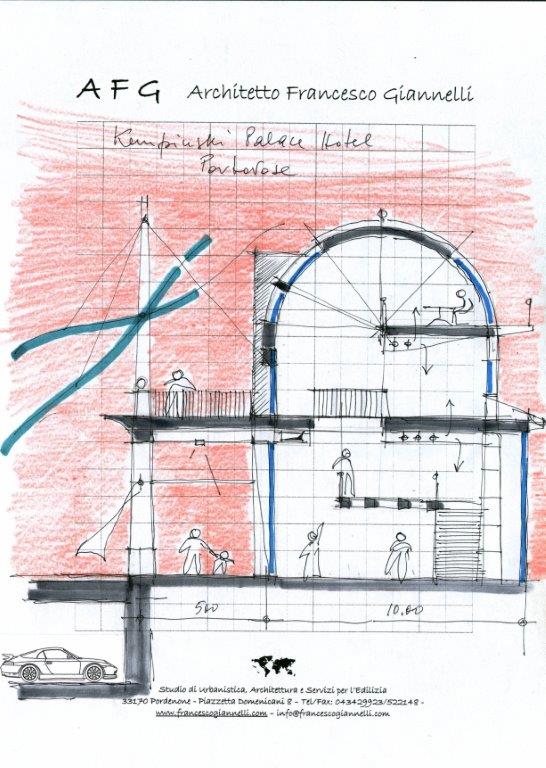 AFG Architetto Francesco Giannelli
Kempinski Palace Hotel
Portorose
500 10.00
Studio di Urbanistica, Architettura e Servizi per l'Edilizia
33170 Pordenone - Piazzetta Domenicani 8 - Tel/Fax: 043429923/522148 -
www.francescogiannelli.com - info@francescogiannelli.com